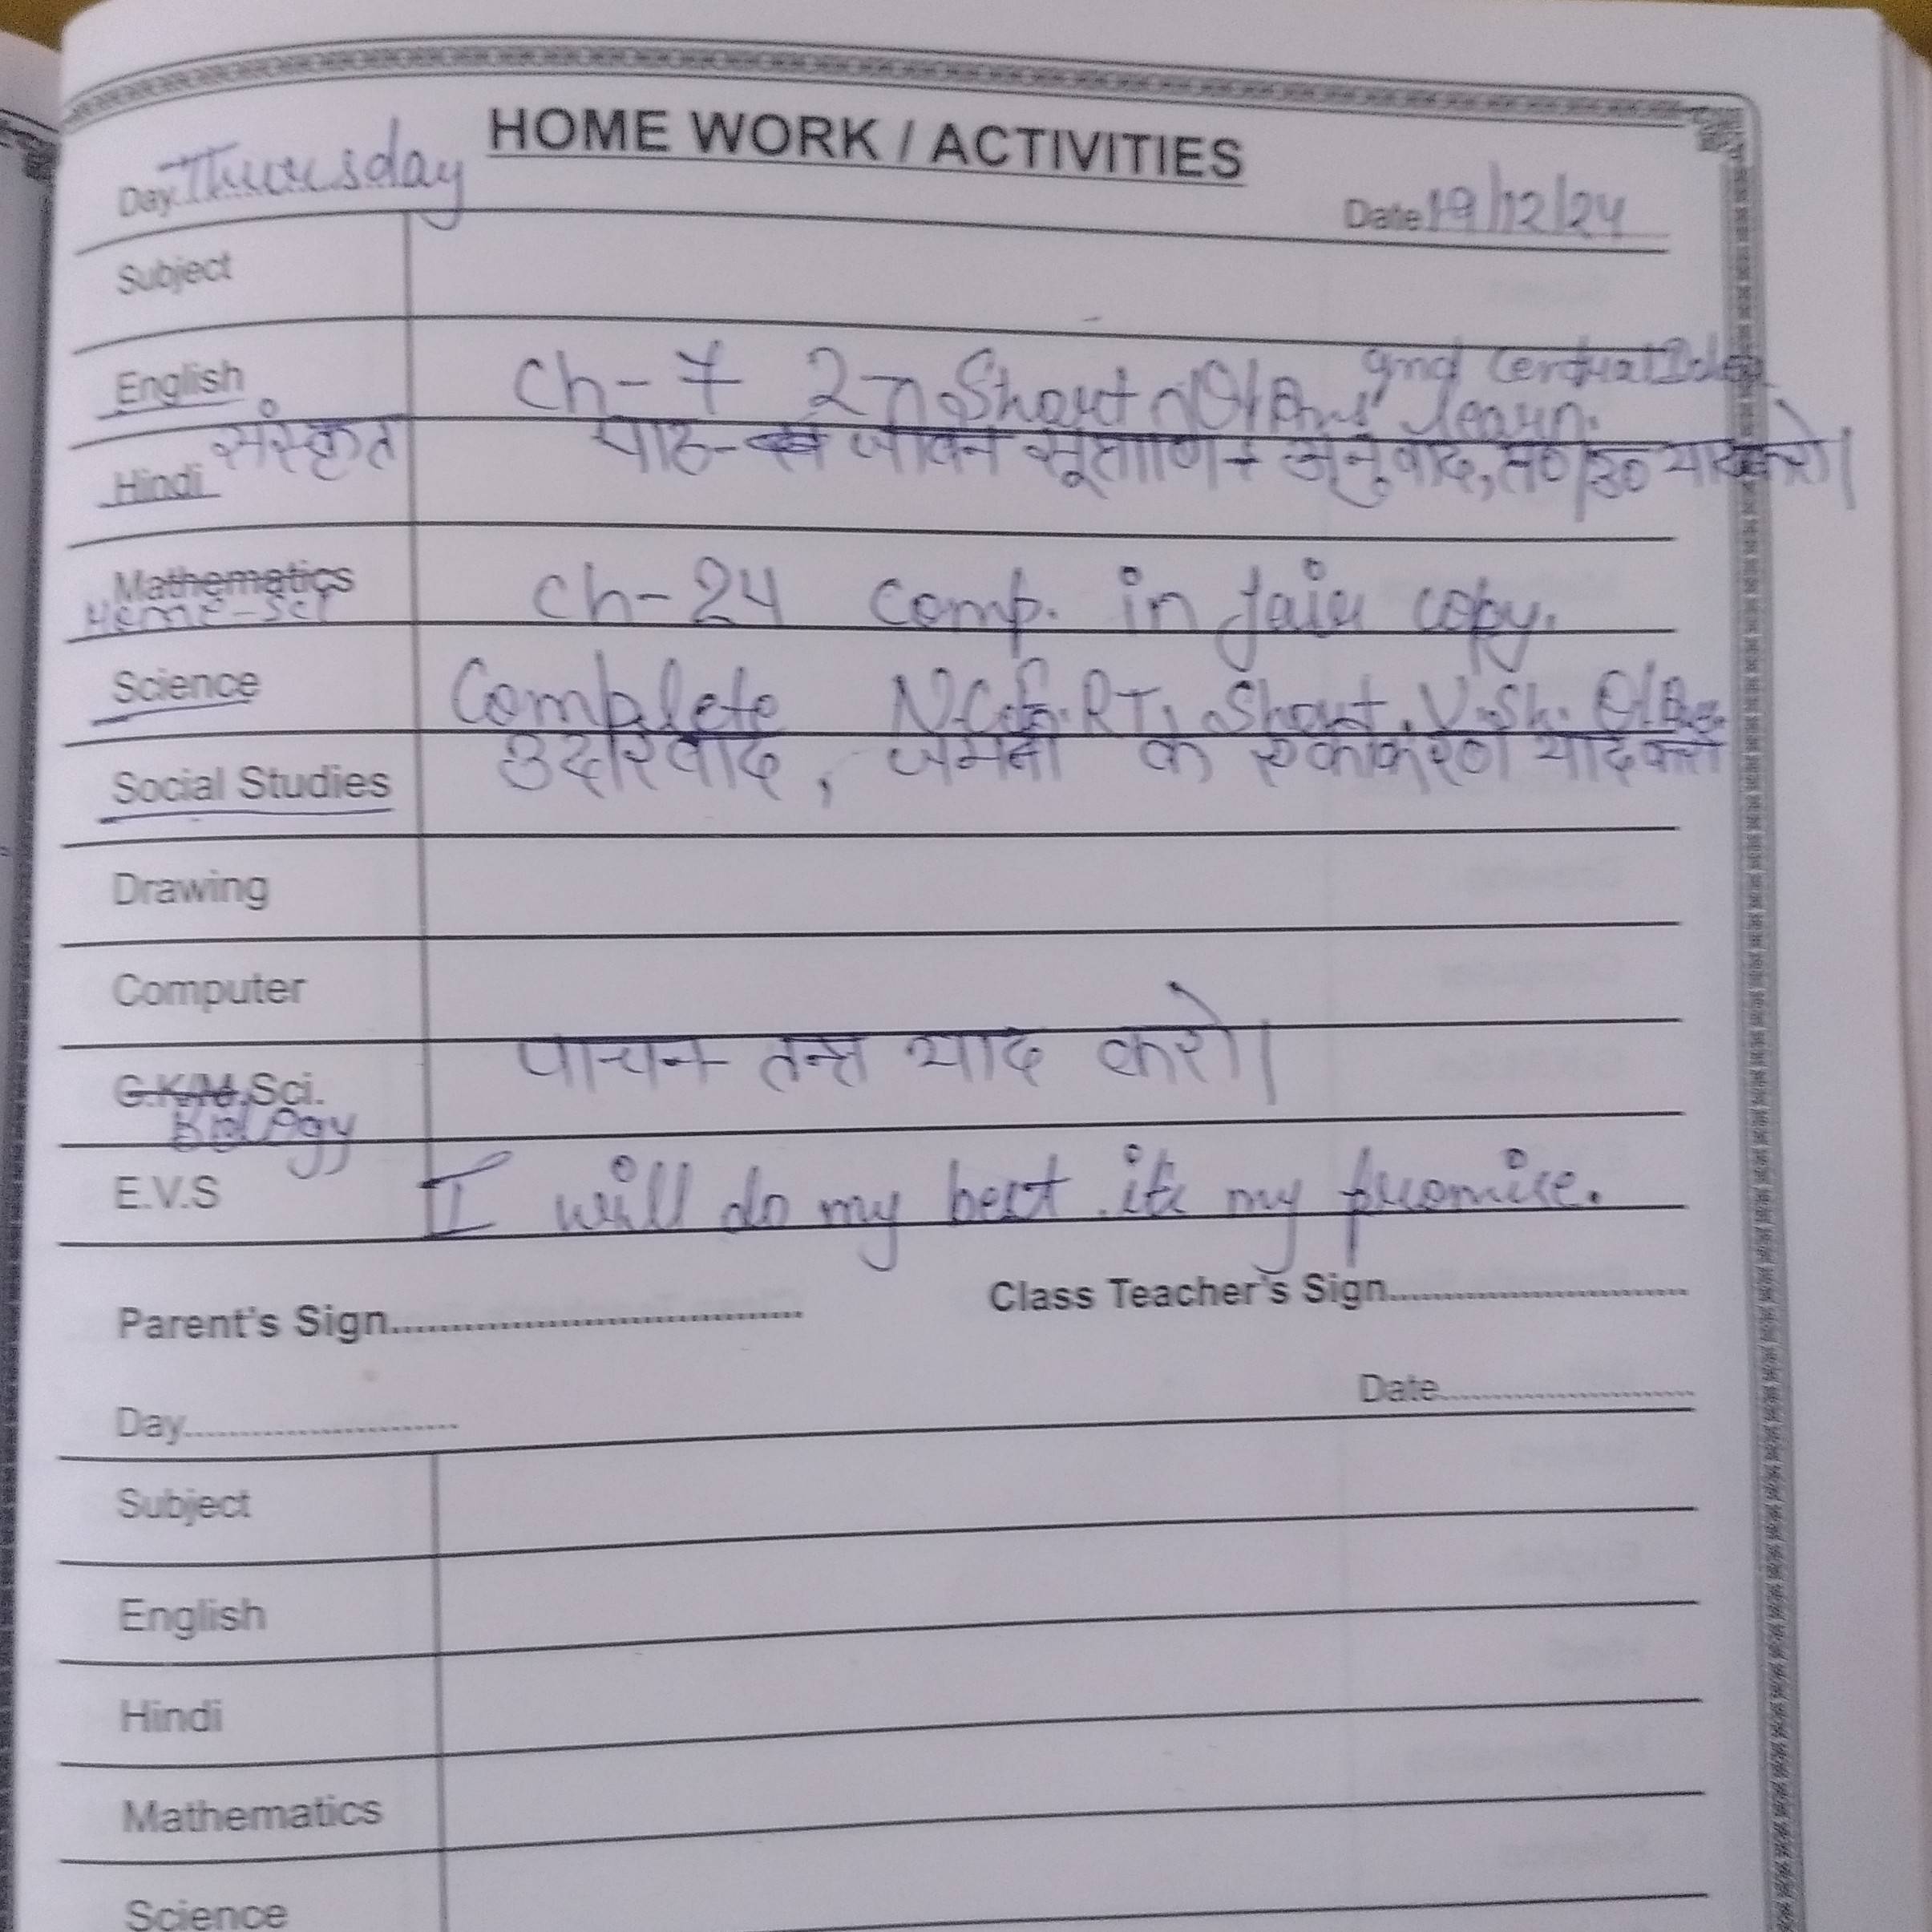 HOME WORK / ACTIVITIES
Day Thursday
Date 19/12/24
Subject
English Ch-7 2 Short Q/Ans and Central Idea learn.
Hindi संस्कृत पाठ- जीवन सूत्राणि अनुवाद, ल०/उ० याद करो।
Mathematics Home-Sci Ch-24 Comp. in fair copy.
Science Complete N.C.E.R.T, Short, V.Sh. Q/Ans.
Social Studies उदारवाद, जर्मनी के एकीकरण याद करो
Drawing
Computer
G.K/M.Sci. Biology पाचन तन्त्र याद करो।
E.V.S I will do my best its my promise.
Parent's Sign............................
Class Teacher's Sign............................
Day............................
Date............................
Subject
English
Hindi
Mathematics
Science